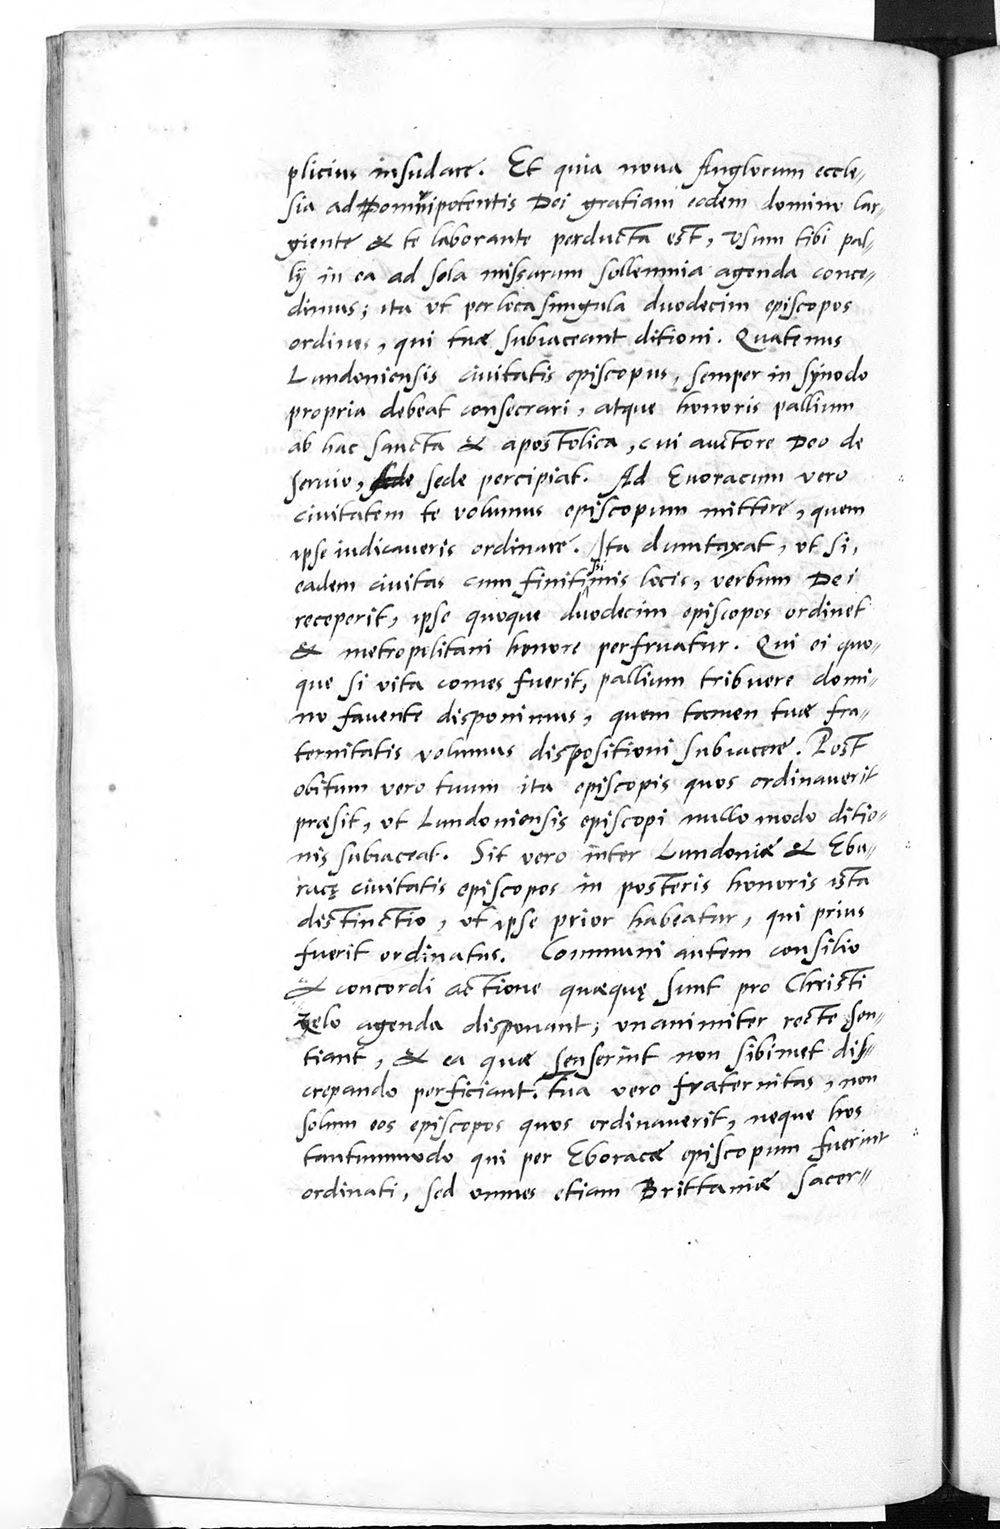 plicius insudare. Et quia nova Anglorum eccle-
sia ad omnipotentis Dei gratiam eodem domino lar-
giente & te laborante perducta est, Usum tibi pal-
lij in ea ad sola missarum sollemnia agenda conce-
dimus; ita ut per loca singula duodecim episcopos
ordines, qui tuæ subiaceant ditioni. Quatenus
Lundoniensis civitatis episcopus, semper in synodo
propria debeat consecrari, atque honoris pallium
ab hac sancta & apostolica, cui auctore Deo de
servio, sede percipiat. Ad Evoracum vero
civitatem te volumus episcopum mittere, quem
ipse iudicaveris ordinare. Ita dumtaxat, ut si,
eadem civitas cum finitimis locis, verbum Dei
receperit, ipse quoque duodecim episcopos ordinet
& metropolitani honore perfruatur. Qui ei quo-
que si vita comes fuerit, pallium tribuere domi-
no favente disponimus, quem tamen tuæ fra-
ternitatis volumus dispositioni subiacere. Post
obitum vero tuum ita episcopis quos ordinaverit
præsit, ut Lundoniensis episcopi nullo modo ditio-
nis subiaceat. Sit vero inter Lundoniæ & Ebu-
racę civitatis episcopos in posteris honoris ista
distinctio, ut ipse prior habeatur, qui prius
fuerit ordinatus. Communi autem consilio
& concordi actione quæquę sunt pro Christi
zelo agenda disponant; unanimiter recte sen-
tiant, & ea quæ senserint non sibimet dis-
crepando perficiant. Tua vero fraternitas, non
solum eos episcopos quos ordinaverit, neque hos
tantummodo qui per Eboracæ episcopum fuerint
ordinati, sed omnes etiam Brittaniæ sacer-